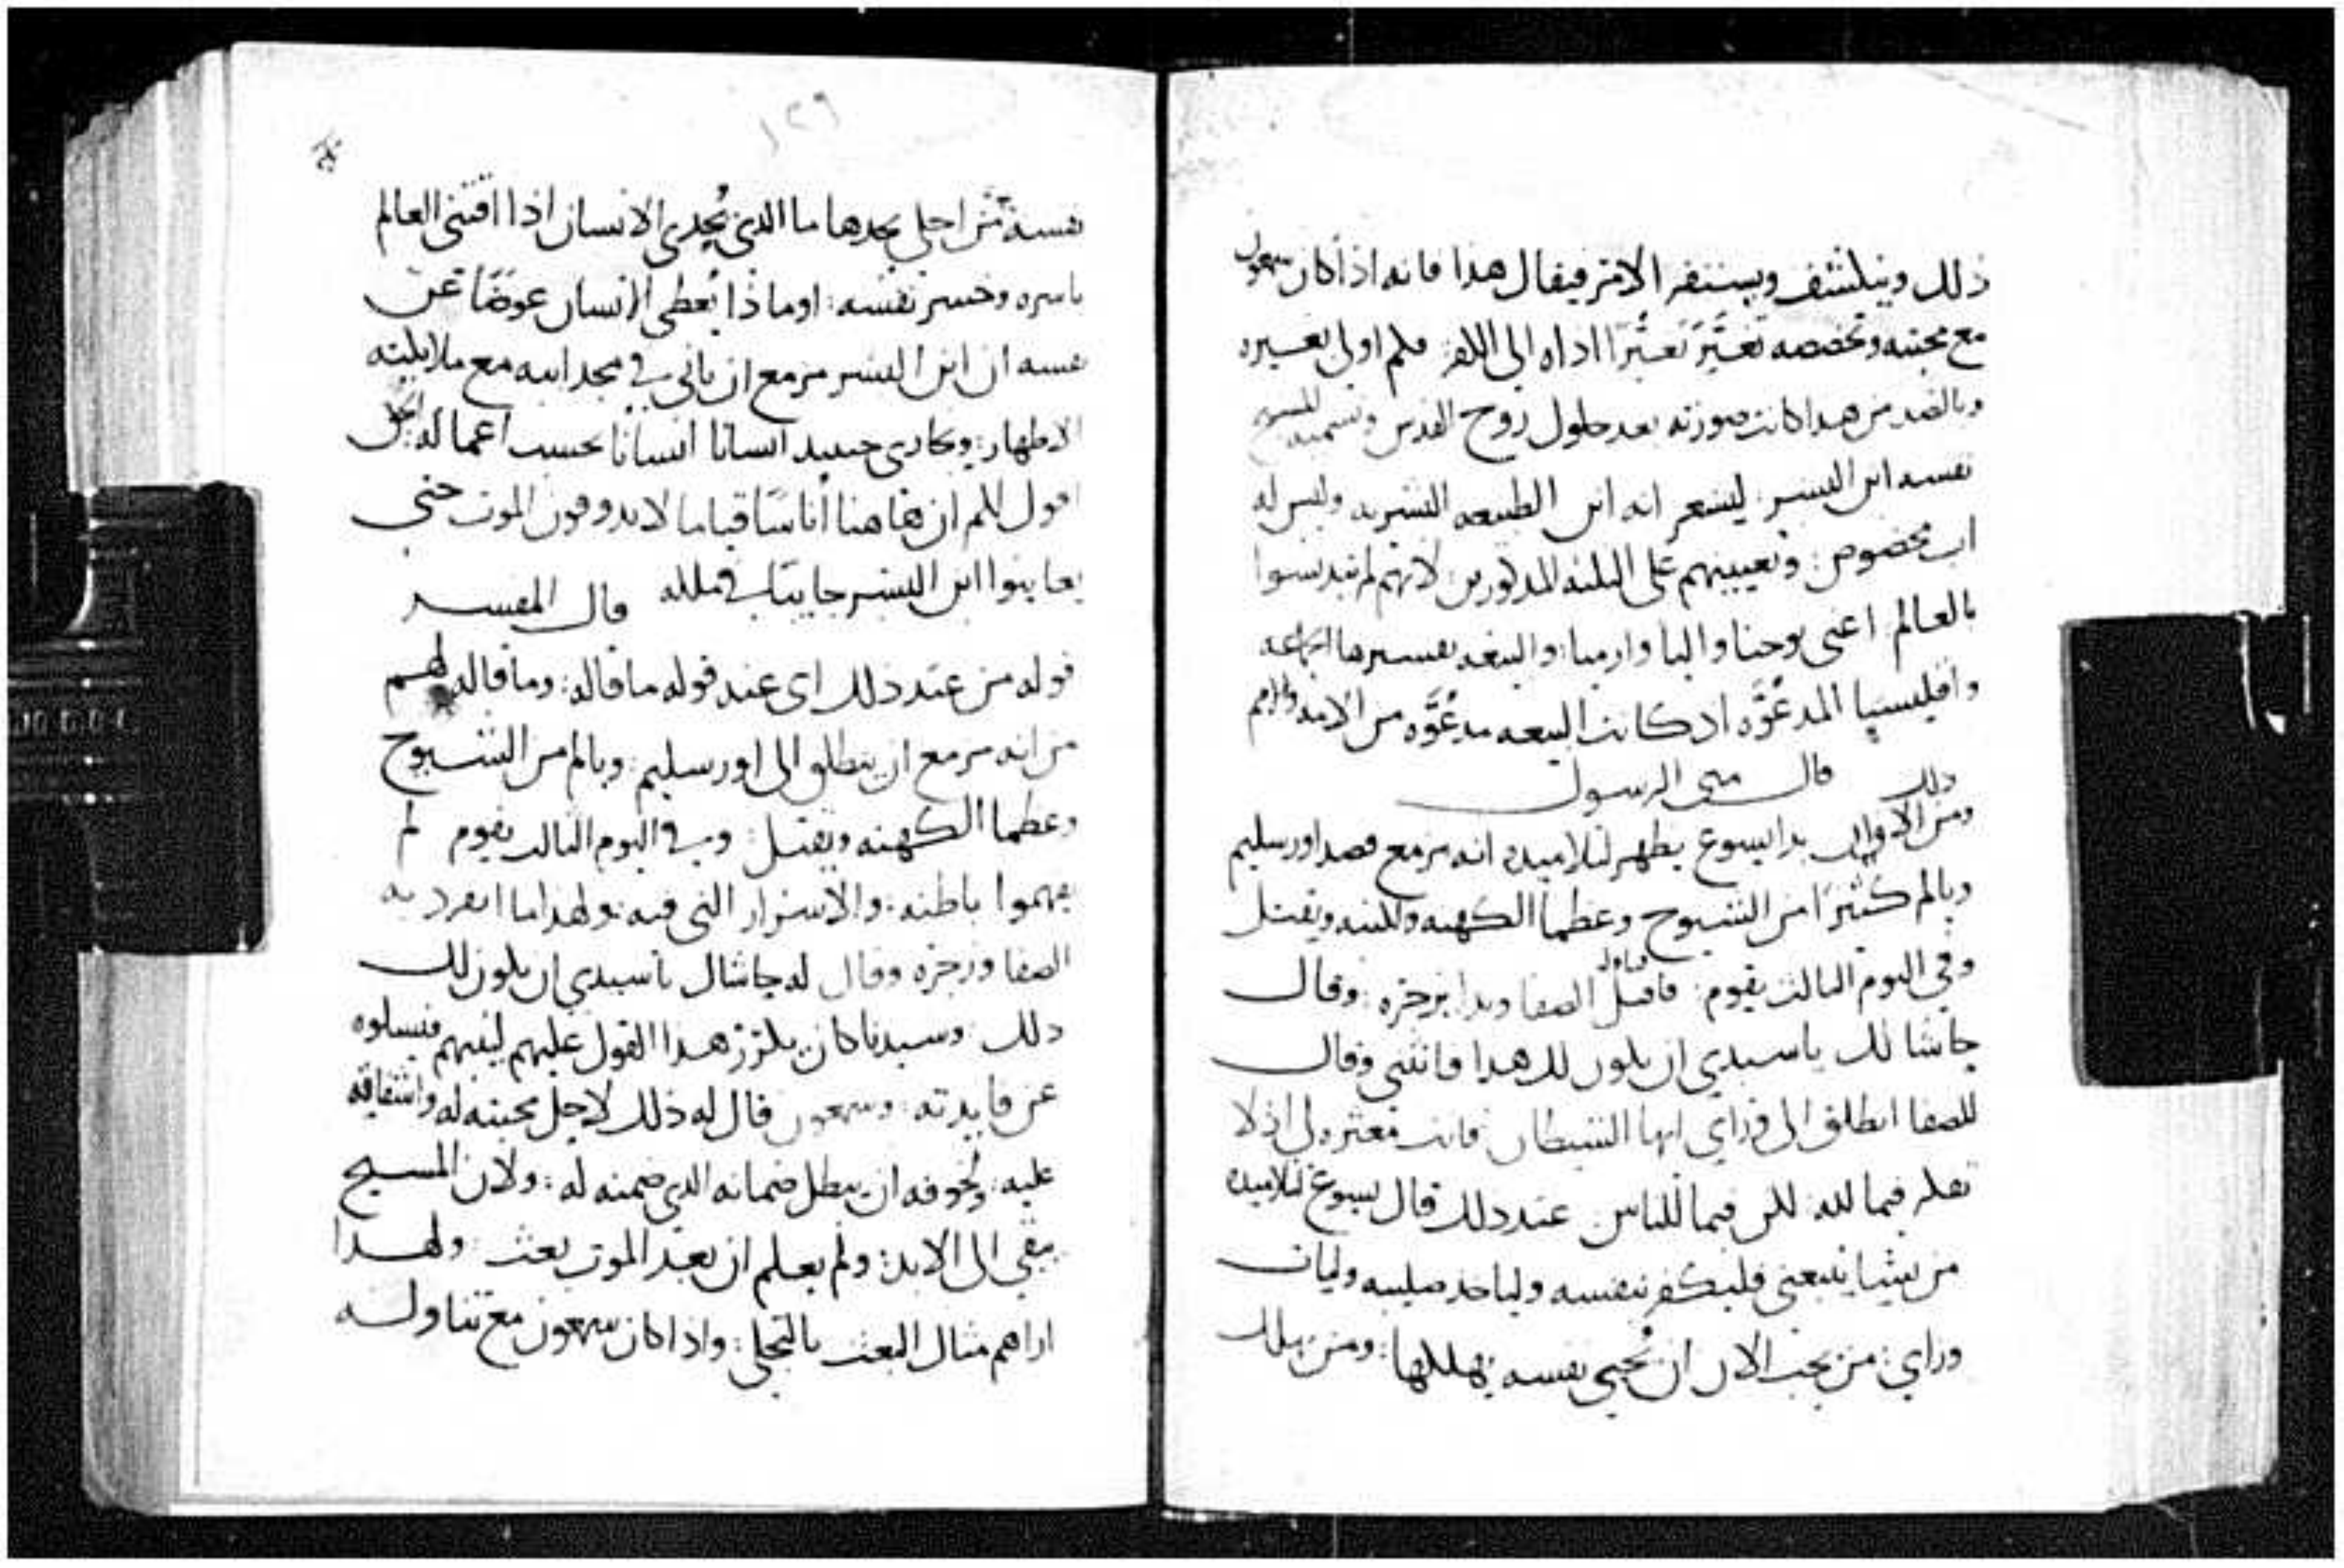 ذلك وينكشف ويستقر الامر فيقال هذا فانه اذا كان سمعون
مع محبته وتخصصه تعثر تعثرا اداه الى الكفر فكم اولى بغيره
وبالضد من هذا كانت صورته بعد حلول روح القدس وتسميه المسيح
نفسه ابن البشر ليشعر انه ابن الطبيعه البشريه وليس له
اب مخصوص: وتعيينهم على الثلثه المذكورين لانهم لم يتدنسوا
بالعالم اعنى يوحنا واليا وارميا: والبيعه تفسيرها الجماعه
واقليسيا المدعوه اذ كانت البيعه مدعوه من الامه
ذلك قال متى الرسول
ومن الاوان بدا يسوع يظهر لتلاميذه انه مزمع قصد اورسليم
ويالم كثيرا من الشيوخ وعظما الكهنه والكتبه ويقتل
وفي اليوم الثالث يقوم: فاقبل الصفا وبدا يزجره: وقال
حاشا لك ياسيدي ان يكون لك هذا فانثنى وقال
للصفا انطلق الى وراي ايها الشيطان فانت معثره لي اذ لا
تفكر فيما لله لكن فيما للناس عند ذلك قال يسوع لتلاميذه
من يشا يتبعني فليكفر بنفسه ولياخذ صليبه وليات
وراي: من يحب الان ان يحيي نفسه يهلكها: ومن يهلك
١٢٦
نفسه من اجلي يجدها ما الذي يجدي الانسان اذا اقتنى العالم
باسره وخسر نفسه: اوماذا يعطى الانسان عوضا عن
نفسه ان ابن البشر مزمع ان ياتي في مجد ابيه مع ملايكته
الاطهار: ويجازى حينيد انسانا انسانا بحسب اعماله:
اقول لكم ان هاهنا اناسا قياما لا يدوقون الموت حتى
يعاينوا ابن البشر جاييا في ملكه قال المفسر
قوله من عند ذلك اى عند قوله ماقاله: وماقاله لهم
من انه مزمع ان ينطلق الى اورسليم: ويالم من الشيوخ
وعظما الكهنه ويقتل: وفي اليوم الثالث يقوم لم
يفهموا باطنه: والاسرار التي فيه: ولهذا ما انفرد به
الصفا وزجره وقال له حاشاك ياسيدي ان يكون لك
ذلك: وسيدنا كان يكرر هذا القول عليهم ليفهم فيسلوه
عن فايدته: وسمعون قال له ذلك لاجل محبته له واشفاقه
عليه: ولخوفه ان يبطل ضمانه الذي ضمنه له: ولان المسيح
يبقي الى الابد: ولم يعلم ان بعد الموت بعث: ولهذا
اراهم مثال البعث بالتجلي: واذا كان سمعون مع تناوله